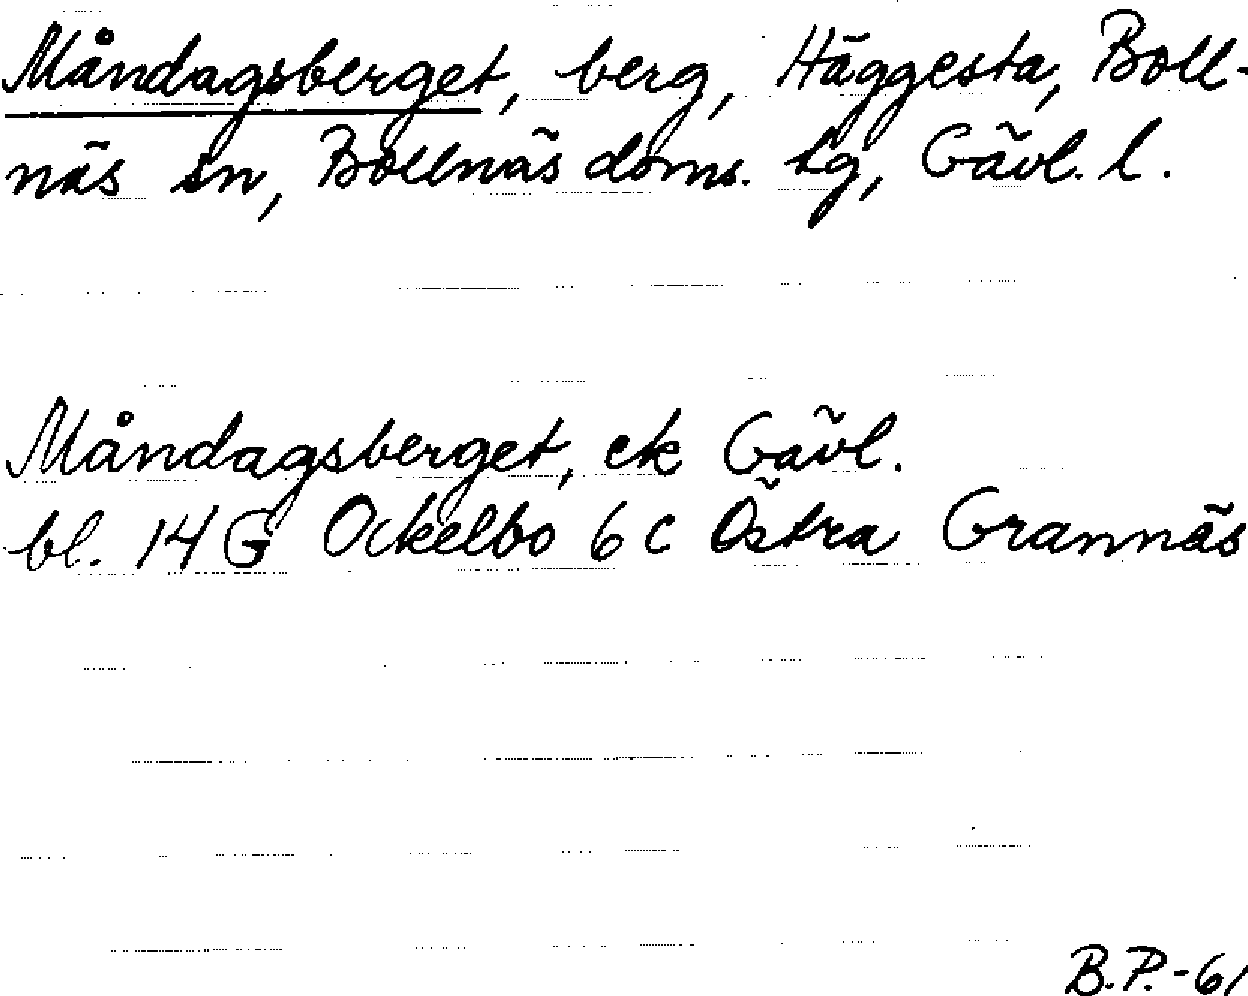 Måndagsberget, berg, Häggesta, Boll-
näs sn, Bollnäs doms. tg, Gävl. l.
Måndagsberget, ek Gävl.
bl. 14 G Ockelbo 6 c Östra Grannäs
B.P.-61